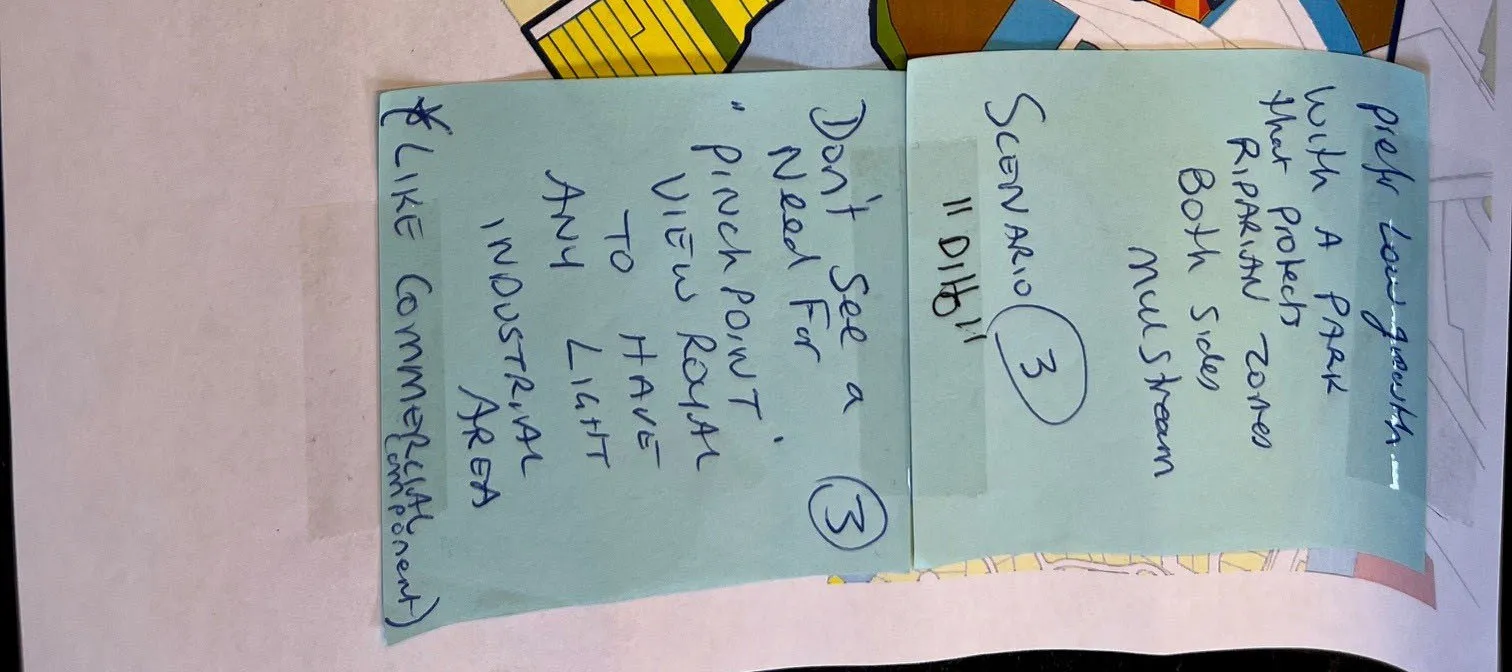 Prefr Low growth
With A PARK
that protects
RIPARIAN zones
Both Sides
Millstream
SCENARIO 3
"Ditto"
Don't See a 3
Need For
"PINCH POINT"
VIEW ROYAL
TO HAVE
ANY LIGHT
INDUSTRIAL
AREA
(*LIKE COMMERCIAL
component)